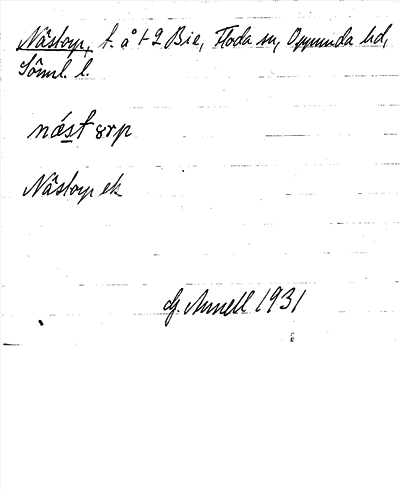 Nästorp, t. å t 2 Bie, Floda sn, Oppunda hd,
Sörml. l.
Nästorp ek
Dj. Annell 1931